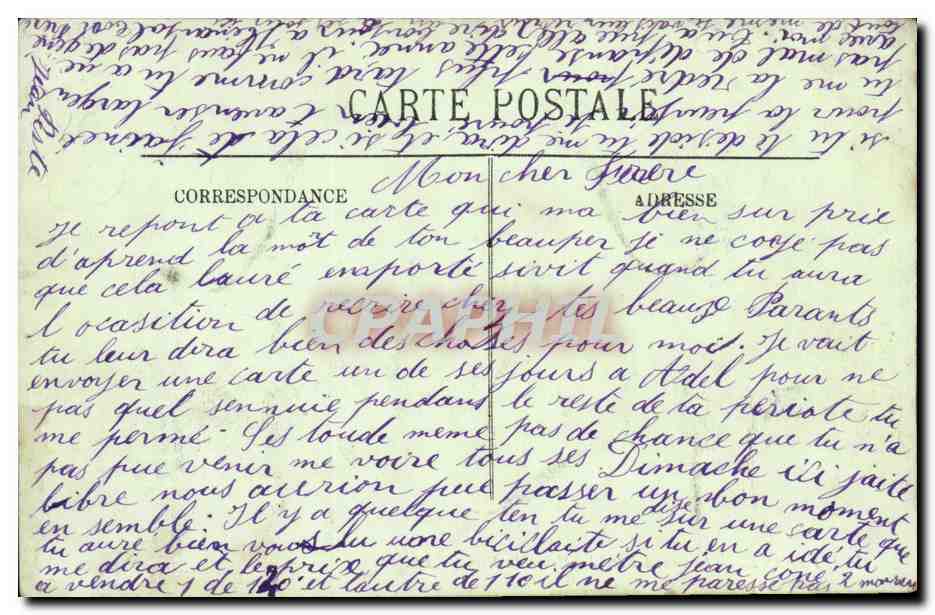 CARTE POSTALE
CORRESPONDANCE
ADRESSE
Mon cher Frere
Je repont a ta carte qui ma bien sur prie
d'aprend la mort de ton beauper je ne coyé pas
que cela lauré enporté sivit quand tu aura
l ocasition de recrire chez tes beaux Parants
tu leur dira bien des choses pour moi. Je vait
envoyer une carte un de ses jours a Adel pour ne
pas quel sennuie pendans le reste de ta periote tu
me permé. Ses toude meme pas de chance que tu n'a
pas pue venir me voire tous ses Dimache ici jaite
libre nous aurion pue passer un bon moment
en semble. Il y a quelque ten tu me dise sur une carte que
tu auré bien voulu une bicillaite si tu en a idé tu
me dira et le prix que tu veu métre jean coné 2
a vendre 1 de 120 et lautre de 110 il ne me paresse pas
si tu la deside tu me dira et si cela te
pour la tu pouré en t'avenser largen
tu me la redré plus tard comme tu a ue
pas mal de dépanse cette anné. il ne faus pas de géné
avec moi.
tout de meme
CPAPHIL